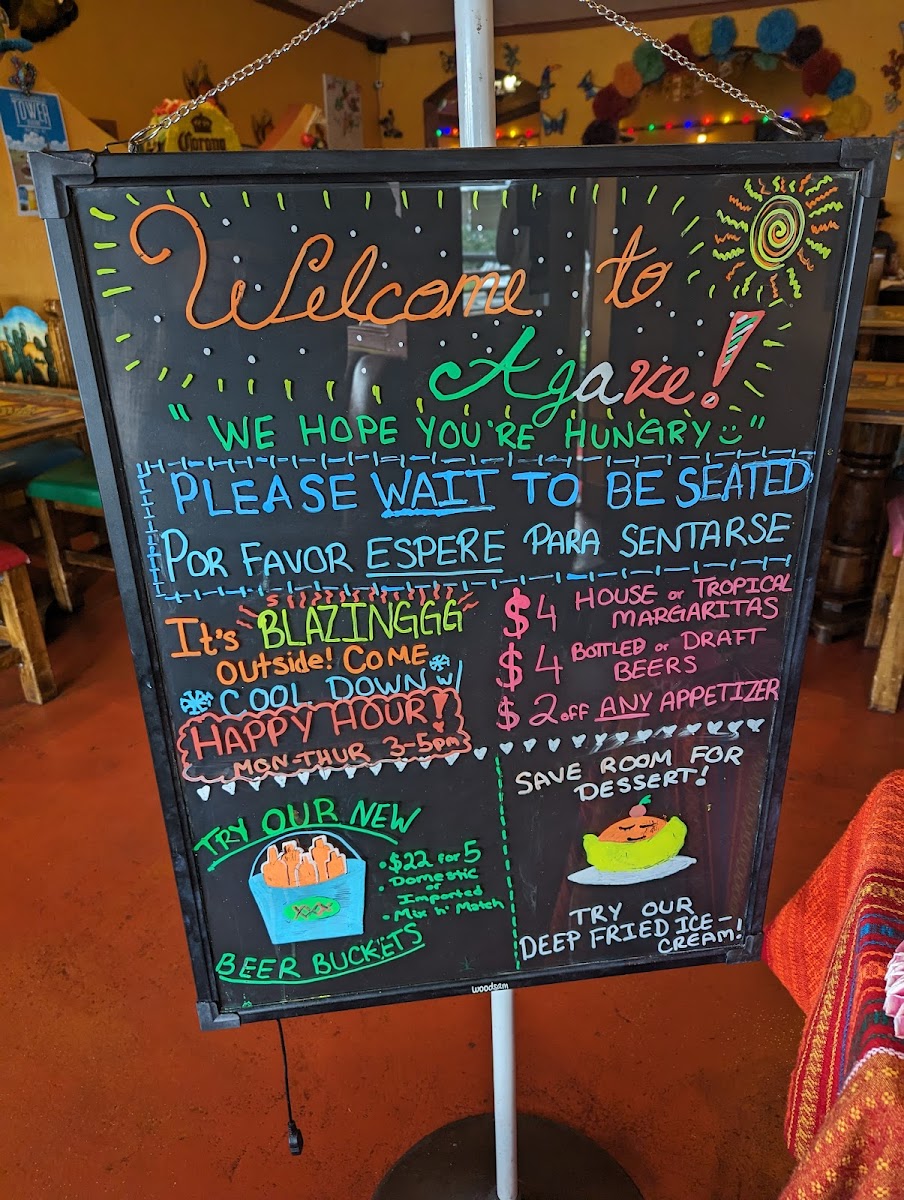 TOWER
Corona
Welcome to
Agave!
"WE HOPE YOU'RE HUNGRY☺"
PLEASE WAIT TO BE SEATED
POR FAVOR ESPERE PARA SENTARSE
It's BLAZINGGG
outside! COME
COOL DOWN w/
HAPPY HOUR!
MON-THUR 3-5pm
$4 HOUSE or TROPICAL
MARGARITAS
$4 BOTTLED or DRAFT
BEERS
$2 off ANY APPETIZER
TRY OUR NEW
XXX
• $22 for 5
• Domestic
or
Imported
• Mix 'n' Match
BEER BUCKETS
SAVE ROOM FOR
DESSERT!
TRY OUR
DEEP FRIED ICE-
CREAM!
woodsam